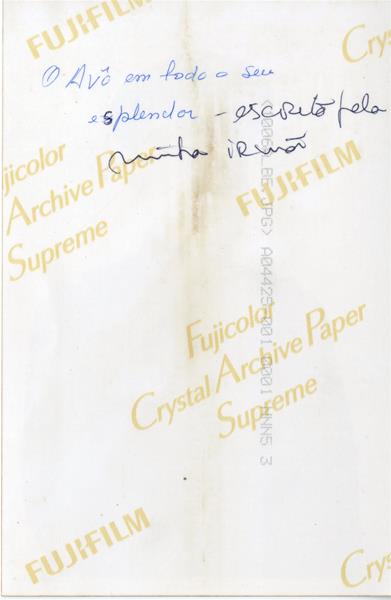 FUJIFILM
Crys
O Avô em todo o seu
esplendor - escrito pela
minha irmão
jicolor
Archive Paper
Supreme
FUJIFILM
Fujicolor
Crystal Archive Paper
Supreme
FUJIFILM
Crys